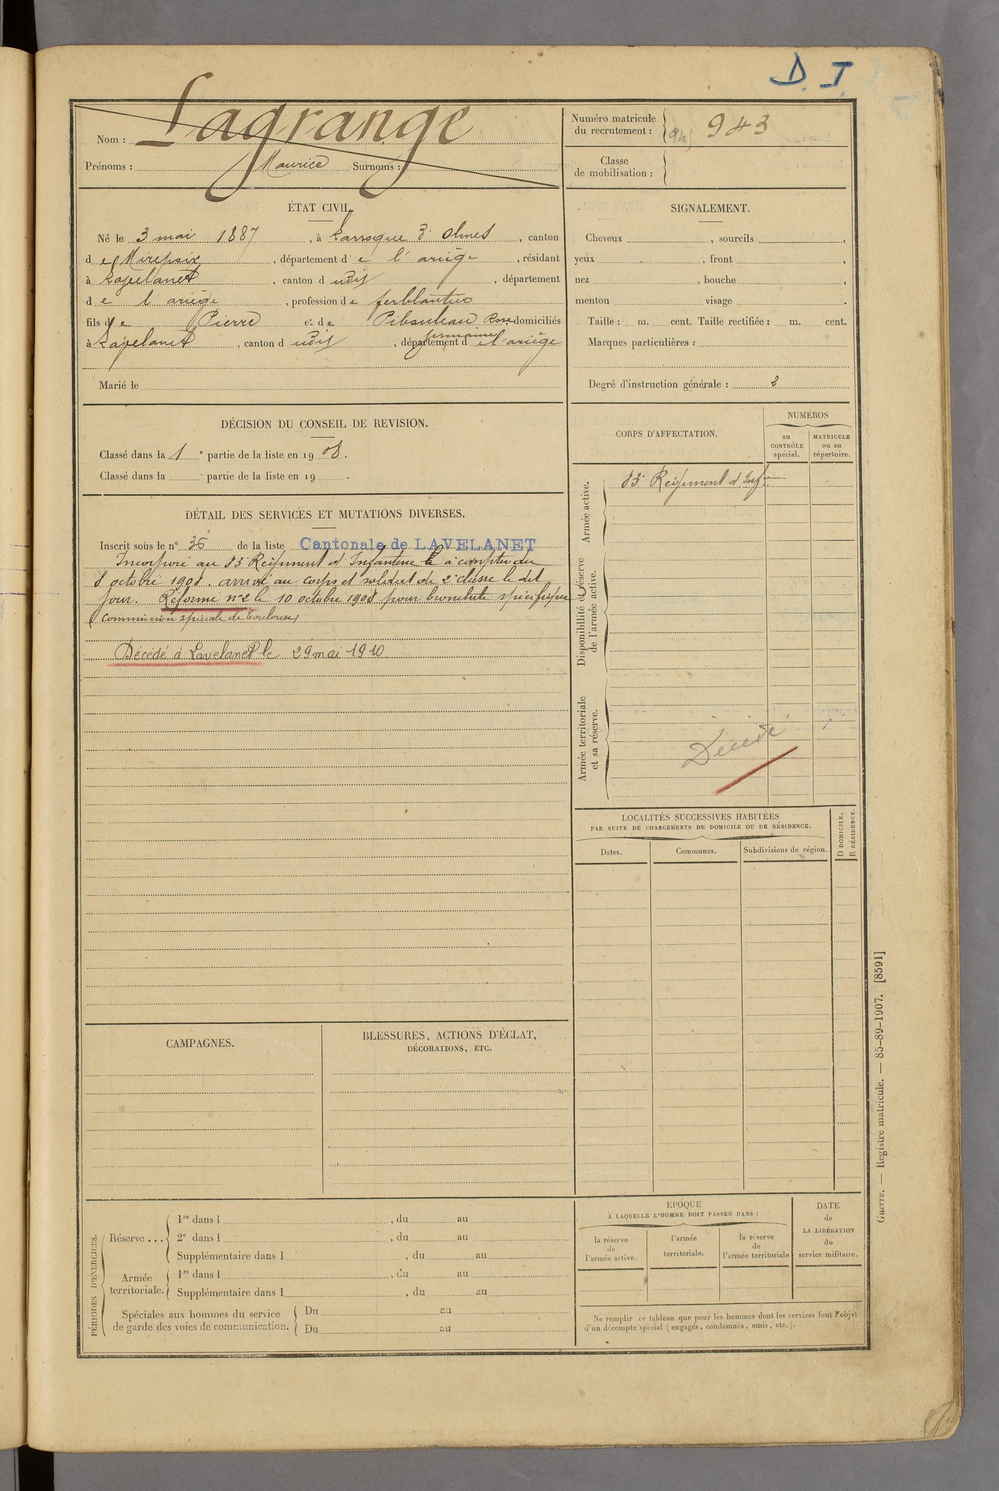 D. I.
Nom : Lagrange
Prénoms : Maurice Surnoms :
Numéro matricule du recrutement : 943
Classe de mobilisation :
ÉTAT CIVIL.
Né le 3 mai 1887, à Larroque d'Olmes, canton
de Mirepoix, département de l'ariège, résidant
à Lavelanet, canton d udit, département
de l'ariège, profession de ferblantier
fils de Pierre et de domiciliés
à Lavelanet, canton d udit, département de l'ariège
Marié le
SIGNALEMENT.
Cheveux , sourcils ,
yeux , front ,
nez , bouche ,
menton visage .
Taille : m. cent. Taille rectifiée : m. cent.
Marques particulières :
Degré d'instruction générale : 2
DÉCISION DU CONSEIL DE REVISION.
Classé dans la 1e partie de la liste en 1908.
Classé dans la partie de la liste en 19 .
DÉTAIL DES SERVICES ET MUTATIONS DIVERSES.
Inscrit sous le n° 36 de la liste Cantonale de LAVELANET
Incorporé au 83e Régiment d'Infanterie à compter du
8 octobre 1908. arrivé au corps et soldat de 2e classe le dit
jour. Réformé n°2 le 10 octobre 1908 pour bronchite spécifique
(commission spéciale de Toulouse)
Décédé à Lavelanet le 29 mai 1910
CORPS D'AFFECTATION.
NUMÉROS
au CONTRÔLE spécial.
MATRICULE ou au répertoire.
Armée active.
83e Régiment d'Infie
Disponibilité et réserve de l'armée active.
Armée territoriale et sa réserve.
Décédé
LOCALITÉS SUCCESSIVES HABITÉES
PAR SUITE DE CHANGEMENTS DE DOMICILE OU DE RÉSIDENCE.
Dates.
Communes.
Subdivisions de région.
D DOMICILE.
R RÉSIDENCE.
CAMPAGNES.
BLESSURES, ACTIONS D'ÉCLAT,
DÉCORATIONS, ETC.
PÉRIODES D'EXERCICES.
Réserve ...
1re dans l , du au
2e dans l , du au
Supplémentaire dans l , du au
Armée territoriale.
1re dans l , du au
Supplémentaire dans l , du au
Spéciales aux hommes du service
de garde des voies de communication.
Du au
Du au
ÉPOQUE
À LAQUELLE L'HOMME DOIT PASSER DANS :
la réserve de l'armée active.
l'armée territoriale.
la réserve de l'armée territoriale
DATE
de
LA LIBÉRATION
du
service militaire.
Ne remplir ce tableau que pour les hommes dont les services font l'objet
d'un décompte spécial (engagés, condamnés, omis, etc.).
Guerre. — Registre matricule. — 85-89-1907. [8591]